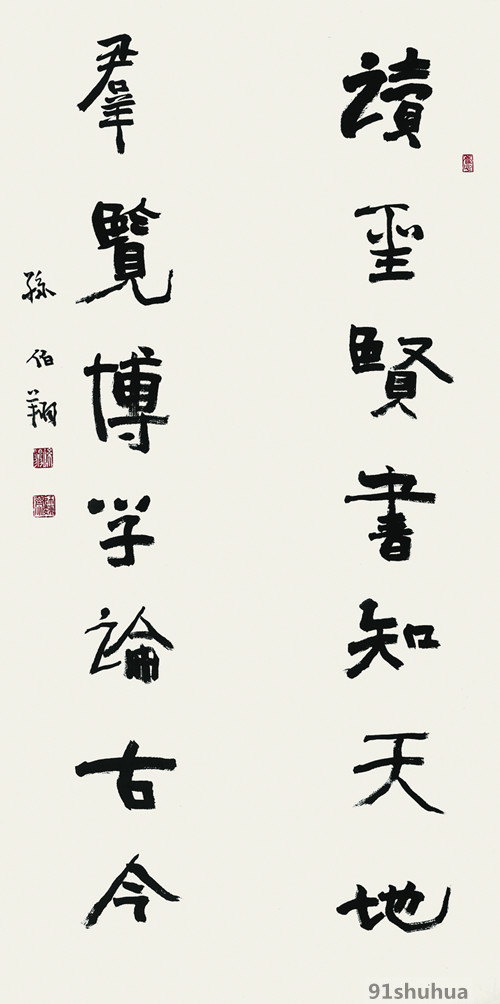 讀聖賢書知天地
羣覽博学論古今
孫伯翔
91shuhua